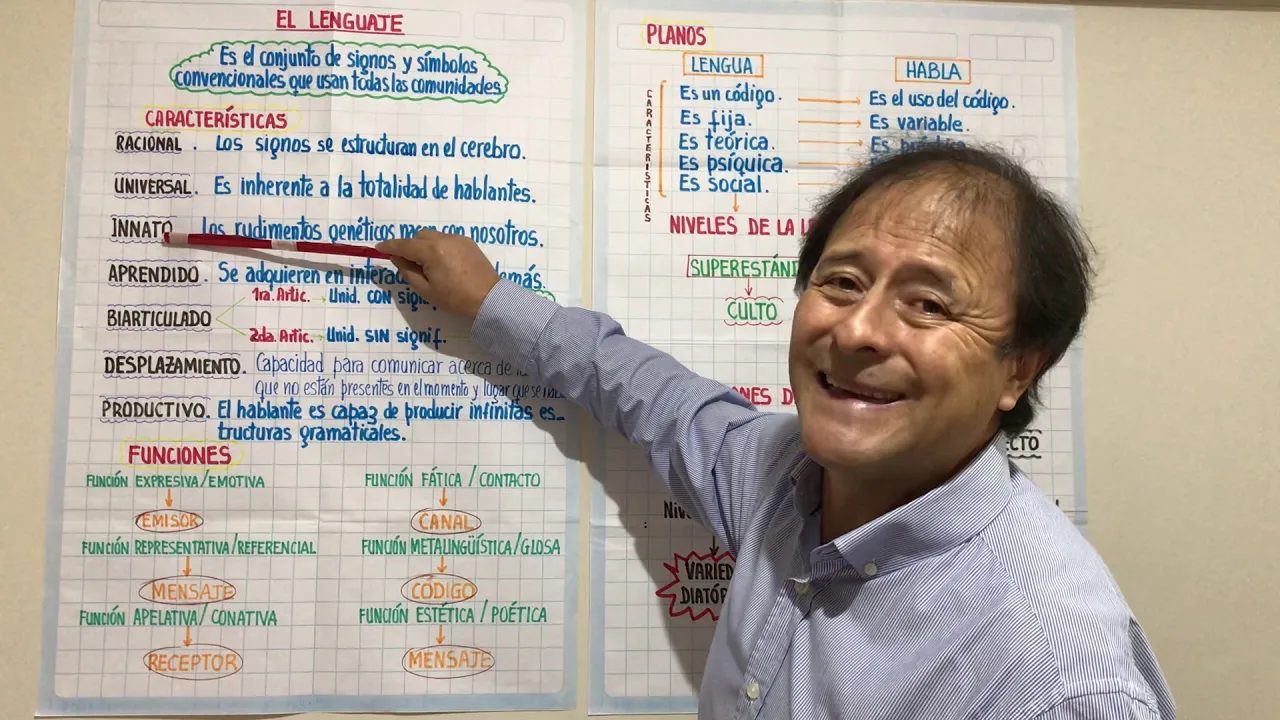 EL LENGUAJE
Es el conjunto de signos y símbolos
convencionales que usan todas las comunidades.
CARACTERÍSTICAS
RACIONAL. Los signos se estructuran en el cerebro.
UNIVERSAL. Es inherente a la totalidad de hablantes.
INNATO Los rudimentos genéticos con nosotros.
APRENDIDO. Se adquieren en
1ra. Artic. Unid. CON
BIARTICULADO
2da. Artic. Unid. SIN signif.
DESPLAZAMIENTO. Capacidad para comunicar acerca de
que no están presentes en el momento y lugar que se
PRODUCTIVO. El hablante es capaz de producir infinitas es_
tructuras gramaticales.
FUNCIONES
FUNCIÓN EXPRESIVA/EMOTIVA
EMISOR
FUNCIÓN REPRESENTATIVA/REFERENCIAL
MENSATE
FUNCIÓN APELATIVA/CONATIVA
RECEPTOR
FUNCIÓN FÁTICA/CONTACTO
CANAL
FUNCIÓN METALINGÜÍSTICA/GLOSA
CÓDIGO
FUNCIÓN ESTÉTICA/POÉTICA
MENSATE
PLANOS
LENGUA
HABLA
CARACTERISTICAS
Es un código. Es el uso del código.
Es fija. Es variable.
Es teórica. Es
Es psíquica.
Es social.
NIVELES DE LA
CULTO